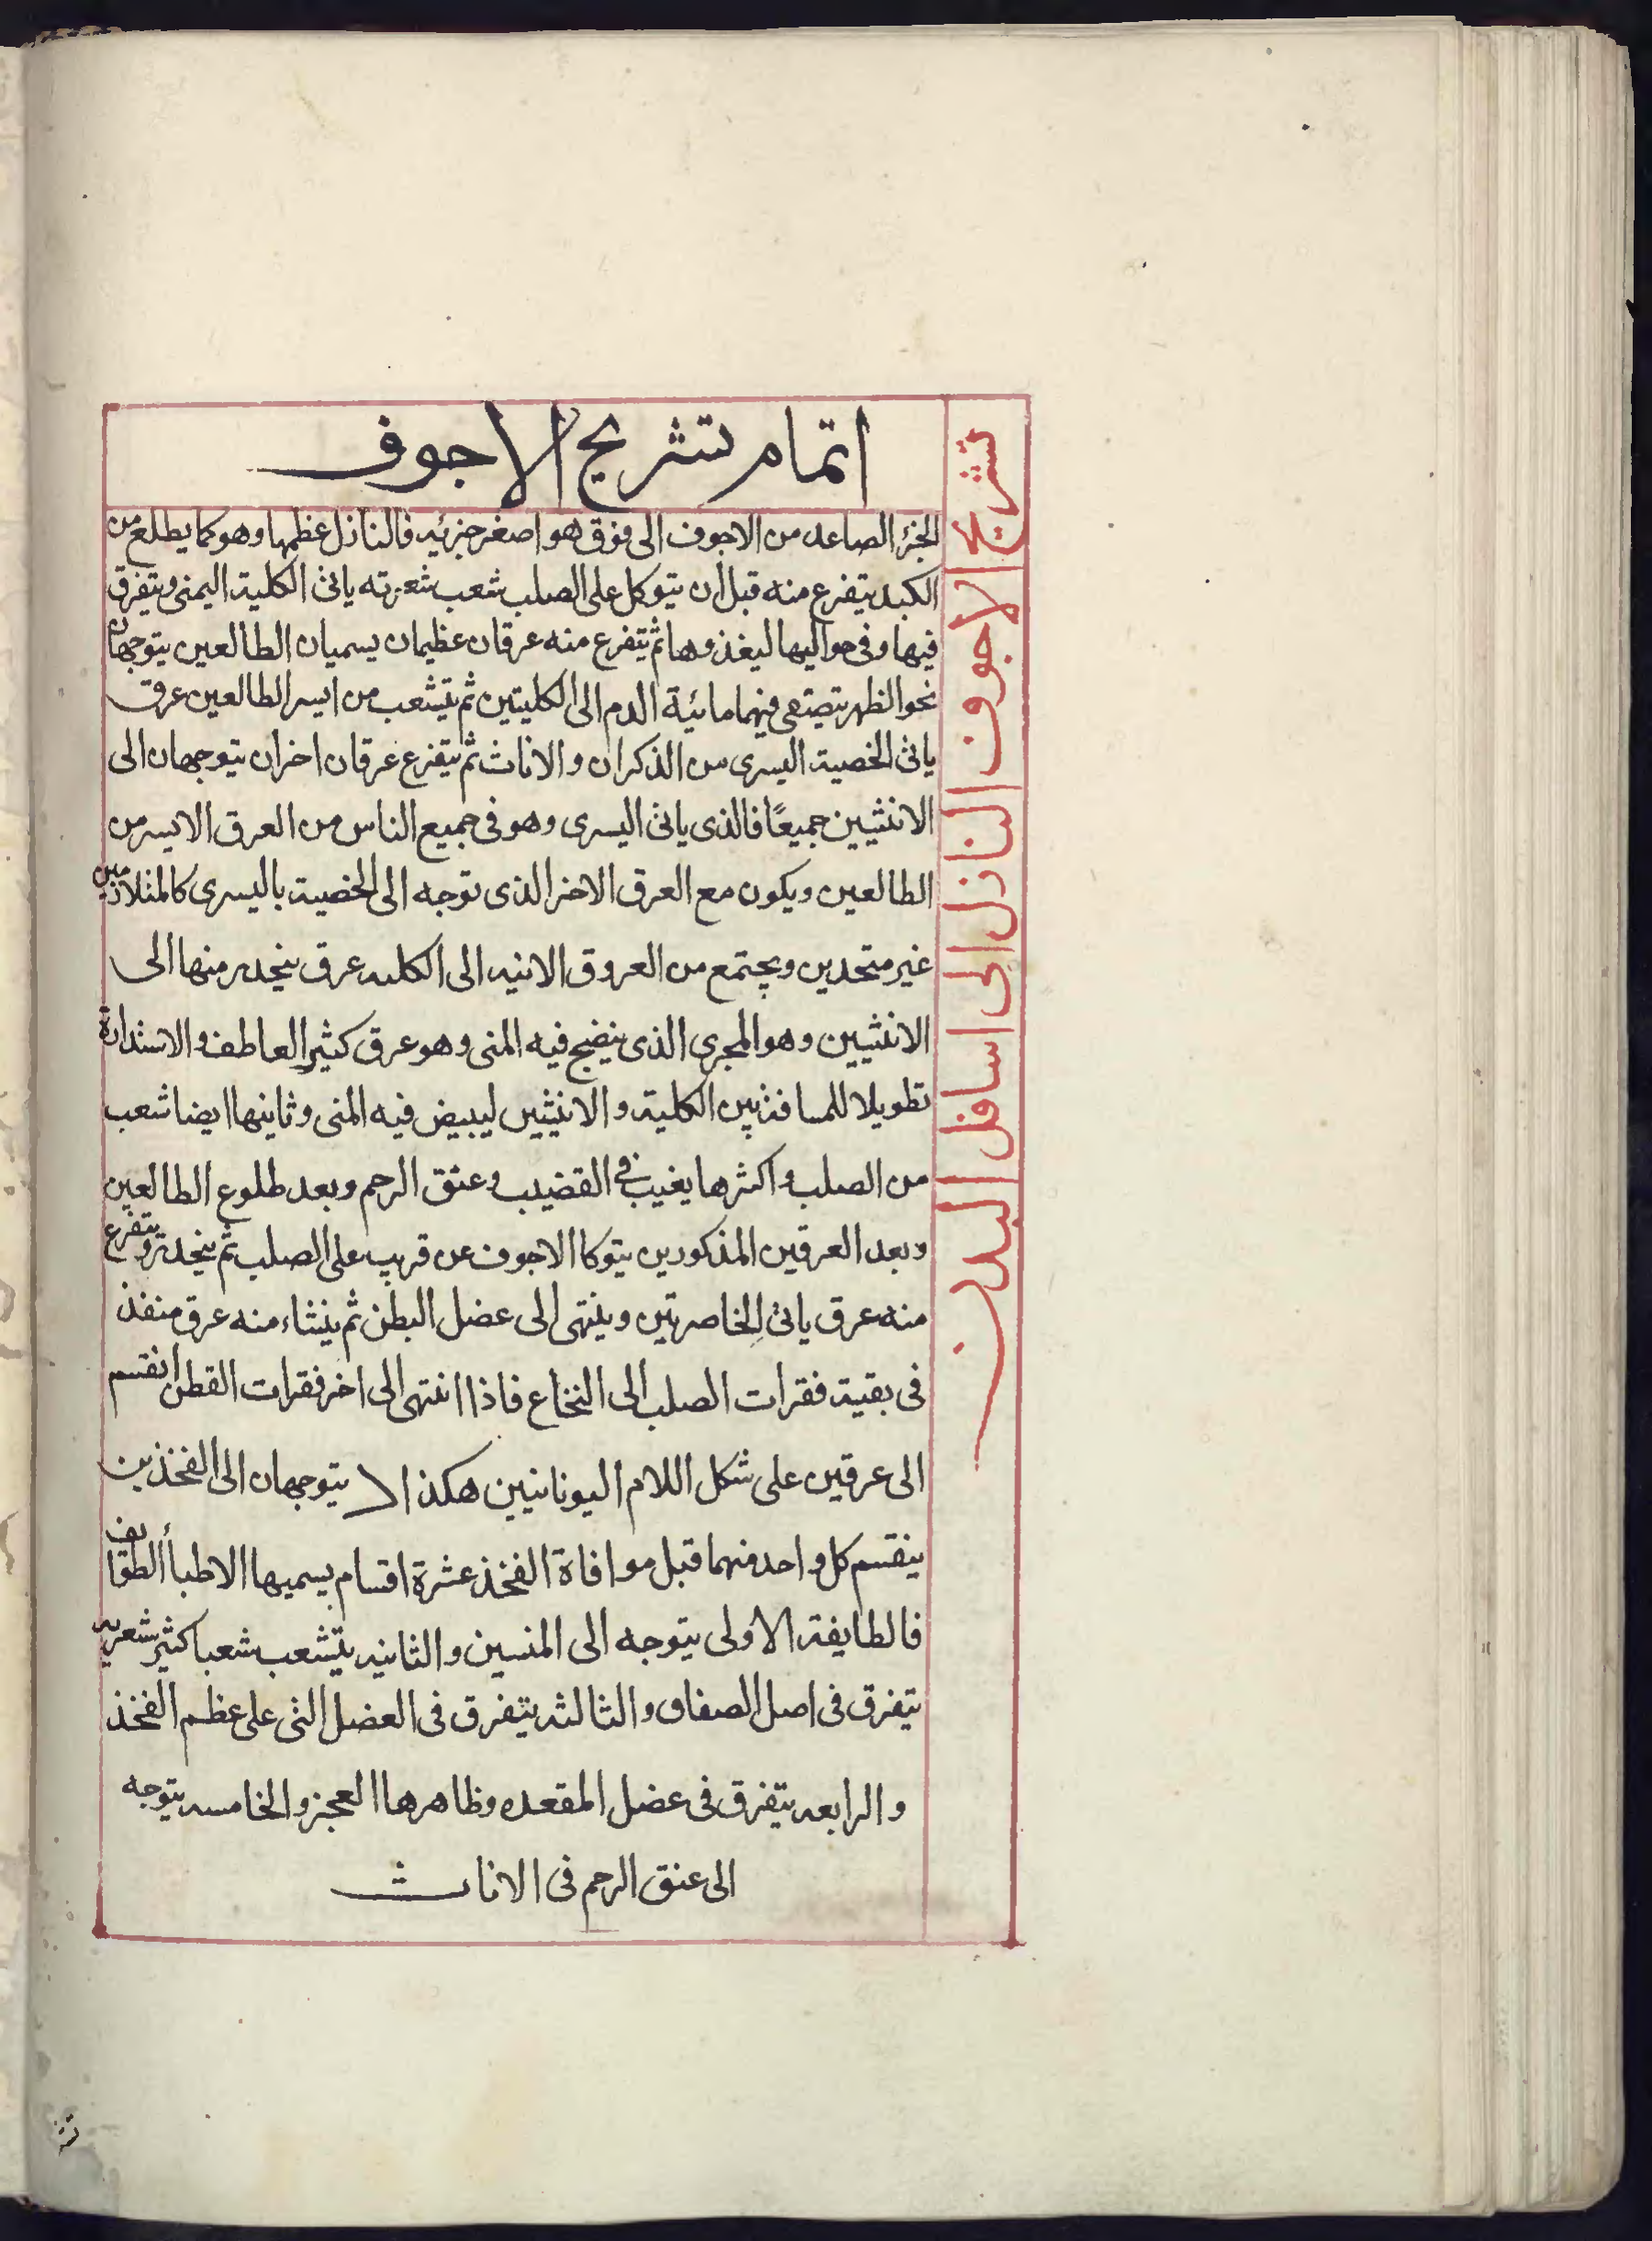 اتمام تشريح الاجوف
تشريح الاجوف النازل الى اسافل البدن
الجزء الصاعد من الاجوف الى فوق هو اصغر جزئيه فالنازل عظمها وهو كما يطلع من
الكبد يتفرع منه قبل ان يتوكل على الصلب شعب شعريه ياتى الكلية اليمنى ويتفرق
فيها وفى حواليها ليغذوها ثم يتفرع منه عرقان عظيمان يسميان الطالعين يتوجهان
نحو الظهر يتصفى فيهما مائية الدم الى الكليتين ثم يتشعب من ايسر الطالعين عرق
ياتى الخصية اليسرى من الذكران والاناث ثم يتفرع عرقان اخران يتوجهان الى
الانثيين جميعًا فالذى ياتى اليسرى وهو فى جميع الناس من العرق الايسر من
الطالعين ويكون مع العرق الاخر الذى توجه الى الخصية باليسرى كالمتلازمين
غير متحدين ويجتمع من العروق الاتيه الى الكليه عرق ينحدر منها الى
الانثيين وهو المجرى الذى ينضج فيه المنى وهو عرق كثير العاطف والاستدارة
تطويلا للمسافة بين الكلية والانثيين ليبيض فيه المنى وثانيها ايضا شعب
من الصلب واكثرها يغيب فى القضيب وعنق الرحم وبعد طلوع الطالعين
وبعد العرقين المذكورين يتوكا الاجوف عن قريب على الصلب ثم ينحدر ويتفرع
منه عرق ياتى الخاصرتين وينتهى الى عضل البطن ثم ينشاء منه عرق منفذ
فى بقية فقرات الصلب الى النخاع فاذا انتهى الى اخر فقرات القطن انقسم
الى عرقين على شكل اللام اليونانيين هكذا ﻻ يتوجهان الى الفخذين
ينقسم كل واحد منهما قبل موافاة الفخذ عشرة اقسام يسميها الاطبأ الطوايف
فالطايفة الاولى يتوجه الى المتنين والثانيه يتشعب شعبا كثير شعريه
يتفرق فى اصل الصفاق والثالثه يتفرق فى العضل التى على عظم الفخذ
والرابعه يتفرق فى عضل المقعده وظاهرها العجز والخامسه يتوجه
الى عنق الرحم فى الاناث